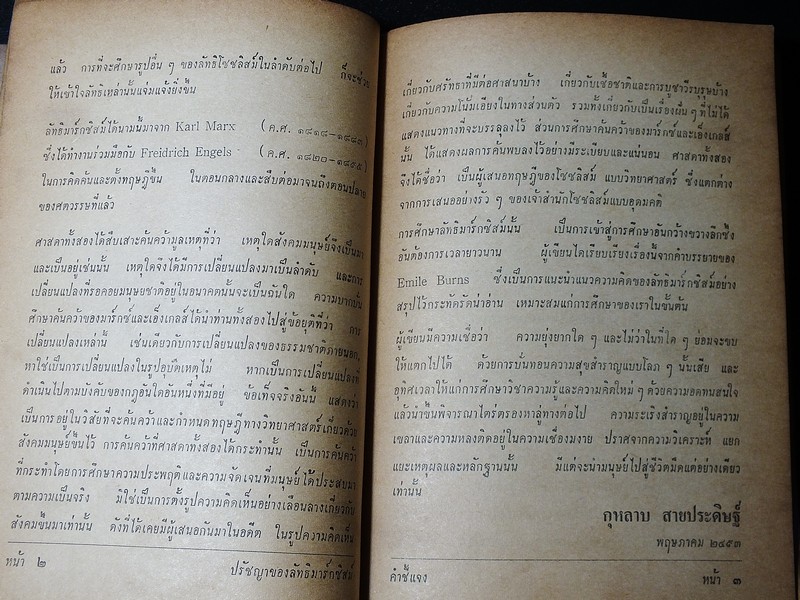 แล้ว การที่จะศึกษารูปอื่น ๆ ของลัทธิโซชลิสม์ในลำดับต่อไป ก็จะช่วย
ให้เข้าใจลัทธิเหล่านั้นแจ่มแจ้งยิ่งขึ้น
ลัทธิมาร์กซิสม์ได้นามนี้มาจาก Karl Marx (ค.ศ. ๑๘๑๘–๑๘๘๓)
ซึ่งได้ทำงานร่วมมือกับ Freidrich Engels (ค.ศ. ๑๘๒๐–๑๘๙๕)
ในการคิดค้นและตั้งทฤษฎีขึ้น ในตอนกลางและสืบต่อมาจนถึงตอนปลาย
ของศตวรรษที่แล้ว
ศาสดาทั้งสองได้สืบเสาะค้นคว้ามูลเหตุที่ว่า เหตุใดสังคมมนุษย์จึงเป็นมา
และเป็นอยู่เช่นนั้น เหตุใดจึงได้มีการเปลี่ยนแปลงมาเป็นลำดับ และการ
เปลี่ยนแปลงที่รอคอยมนุษยชาติอยู่ในอนาคตนั้นจะเป็นฉันใด ความบากบั่น
ศึกษาค้นคว้าของมาร์กซ์และเอ็งเกลส์ได้นำท่านทั้งสองไปสู่ข้อยุติที่ว่า การ
เปลี่ยนแปลงเหล่านี้ เช่นเดียวกับการเปลี่ยนแปลงของธรรมชาติภายนอก
หาใช่เป็นการเปลี่ยนแปลงในรูปอุบัติเหตุไม่ หากเป็นการเปลี่ยนแปลงที่
ดำเนินไปตามบังคับของกฎอันใดอันหนึ่งที่มีอยู่ ข้อเท็จจริงอันนี้ แสดงว่า
เป็นการอยู่ในวิสัยที่จะค้นคว้าและกำหนดทฤษฎีทางวิทยาศาสตร์เกี่ยวด้วย
สังคมมนุษย์ขึ้นไว้ การค้นคว้าที่ศาสดาทั้งสองได้กระทำนั้น เป็นการค้นคว้า
ที่กระทำโดยการศึกษาความประพฤติและความจัดเจนที่มนุษย์ได้ประสบมา
ตามความเป็นจริง มิใช่เป็นการตั้งรูปความคิดเห็นอย่างเลือนลางเกี่ยวกับ
สังคมขึ้นมาเท่านั้น ดังที่ได้เคยมีผู้เสนอกันมาในอดีต ในรูปความคิดเห็น
หน้า ๒ ปรัชญาของลัทธิมาร์กซิสม์
เกี่ยวกับศรัทธาที่มีต่อศาสนาบ้าง เกี่ยวกับเชื้อชาติและการบูชาวีรบุรุษบ้าง
เกี่ยวกับความโน้มเอียงในทางส่วนตัว รวมทั้งเกี่ยวกับเป็นเรื่องฝัน ๆ ที่ไม่ได้
แสดงแนวทางที่จะบรรลุลงไว้ ส่วนการศึกษาค้นคว้าของมาร์กซ์และเอ็งเกลส์
นั้น ได้แสดงผลการค้นพบลงไว้อย่างมีระเบียบและแน่นอน ศาสดาทั้งสอง
จึงได้ชื่อว่า เป็นผู้เสนอทฤษฎีของโซชลิสม์ แบบวิทยาศาสตร์ ซึ่งแตกต่าง
จากการเสนออย่างรัว ๆ ของเจ้าสำนักโซชลิสม์แบบอุดมคติ
การศึกษาลัทธิมาร์กซิสม์นั้น เป็นการเข้าสู่การศึกษาอันกว้างขวางลึกซึ้ง
อันต้องการเวลายาวนาน ผู้เขียนได้เรียบเรียงเรื่องนี้จากคำบรรยายของ
Emile Burns ซึ่งเป็นการแนะนำแนวความคิดของลัทธิมาร์กซิสม์อย่าง
สรุปไว้กระทัดรัดน่าอ่าน เหมาะสมแก่การศึกษาของเราในขั้นต้น
ผู้เขียนมีความเชื่อว่า ความยุ่งยากใด ๆ และไม่ว่าในที่ใด ๆ ย่อมจะขบ
ให้แตกไปได้ ด้วยการบั่นทอนความสุขสำราญแบบโลภ ๆ นั้นเสีย และ
อุทิศเวลาให้แก่การศึกษาวิชาความรู้และความคิดใหม่ ๆ ด้วยความอดทนสนใจ
แล้วนำขึ้นพิจารณาไตร่ตรองหาลู่ทางต่อไป ความระเริงสำราญอยู่ในความ
เขลาและความหลงติดอยู่ในความเชื่องมงาย ปราศจากความวิเคราะห์ แยก
แยะเหตุผลและหลักฐานนั้น มีแต่จะนำมนุษย์ไปสู่ชีวิตมืดแต่อย่างเดียว
เท่านั้น
กุหลาบ สายประดิษฐ์
พฤษภาคม ๒๔๙๓
คำชี้แจง หน้า ๓